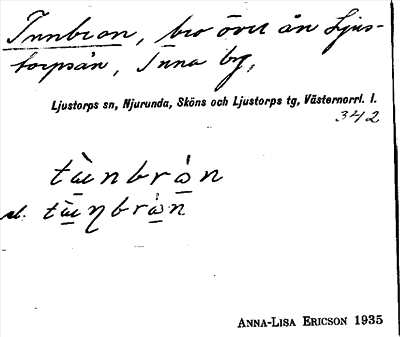 Tunbron, bro över ån Ljus-
torpsån, Tuna by,
Ljustorps sn, Njurunda, Sköns och Ljustorps tg, Västernorrl. l.
342
el.
ANNA-LISA ERICSON 1935